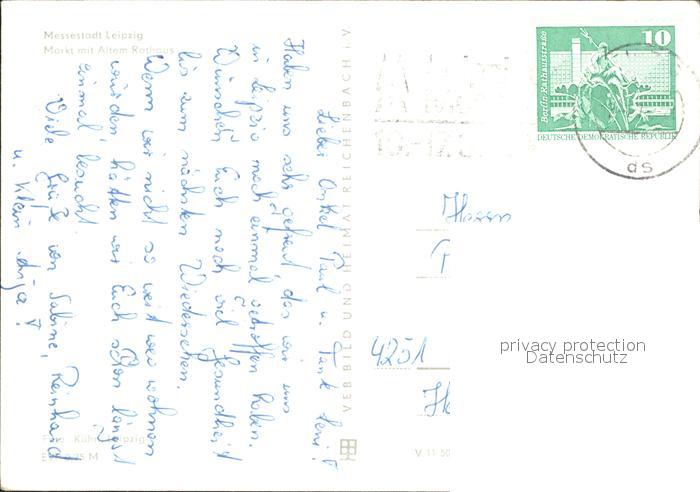 Messestadt Leipzig
Markt mit Altem Rathaus
Lieber Onkel Paul u. Tante Leni!
Haben uns sehr gefreut, das wir uns
in Leipzig noch einmal getroffen haben.
Wünschen Euch noch viel Gesundheit
bis zum nächsten Wiedersehen.
Wenn wir nicht so weit weg wohnen
würden, hätten wir Euch schon längst
einmal besucht.
Viele Grüße von Sabine, Reinhard
u. Klein
VEB BILD UND HEIMAT REICHENBACH i. V.
Berlin, Rathausstraße
10
DEUTSCHE DEMOKRATISCHE REPUBLIK
Herrn
4251
privacy protection
Datenschutz
Foto: Kühn, Leipzig
V 11 50